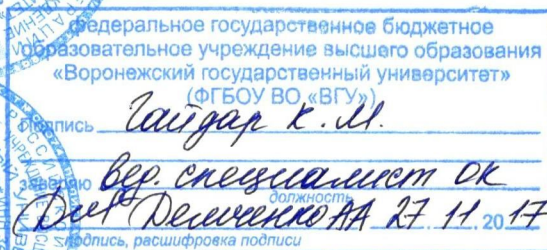 федеральное государственное бюджетное
образовательное учреждение высшего образования
«Воронежский государственный университет»
(ФГБОУ ВО «ВГУ»)
Подпись Гайдар К.М.
заверяю вед. специалист ОК
должность
Демченко АА 27 11 2017
подпись, расшифровка подписи